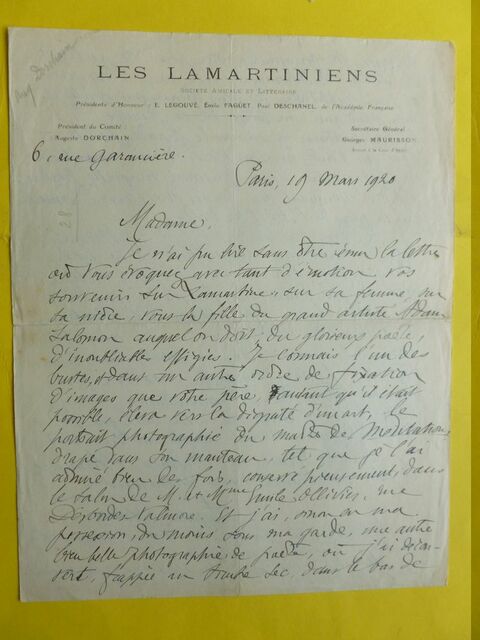 Aug Dorchain
LES LAMARTINIENS
SOCIÉTÉ AMICALE ET LITTÉRAIRE
Présidents d'Honneur : E. LEGOUVÉ, Emile FAGUET, Paul DESCHANEL, de l'Académie Française
Président du Comité :
Auguste DORCHAIN
Secrétaire Général
Georges MAURISSON
Avocat à la Cour d'Appel
6, rue Garancière.
Paris, 19 Mars 1920
28
Madame,
Je n'ai pu lire sans être ému la lettre
où vous évoquez avec tant d'émotion vos
souvenirs sur Lamartine, sur sa femme, sur
sa nièce, vous la fille du grand artiste Adam
Salomon auquel on doit, du glorieux poète,
d'inoubliables effigies. Je connais l'un des
bustes, et dans un autre ordre de fixation
d'images que votre père, autant qu'il était
possible, éleva vers la dignité d'un art, le
portrait photographié du maître des Méditations
drapé dans son manteau, tel que je l'ai
admiré bien des fois, conservé pieusement, dans
le salon de M. et Mme Emile Ollivier, rue
Desbordes Valmore. Et j'ai, sinon en ma
possession, du moins sous ma garde, une autre
bien belle photographie du poète, où j'ai décou-
vert, frappée au timbre sec, dans le bas de